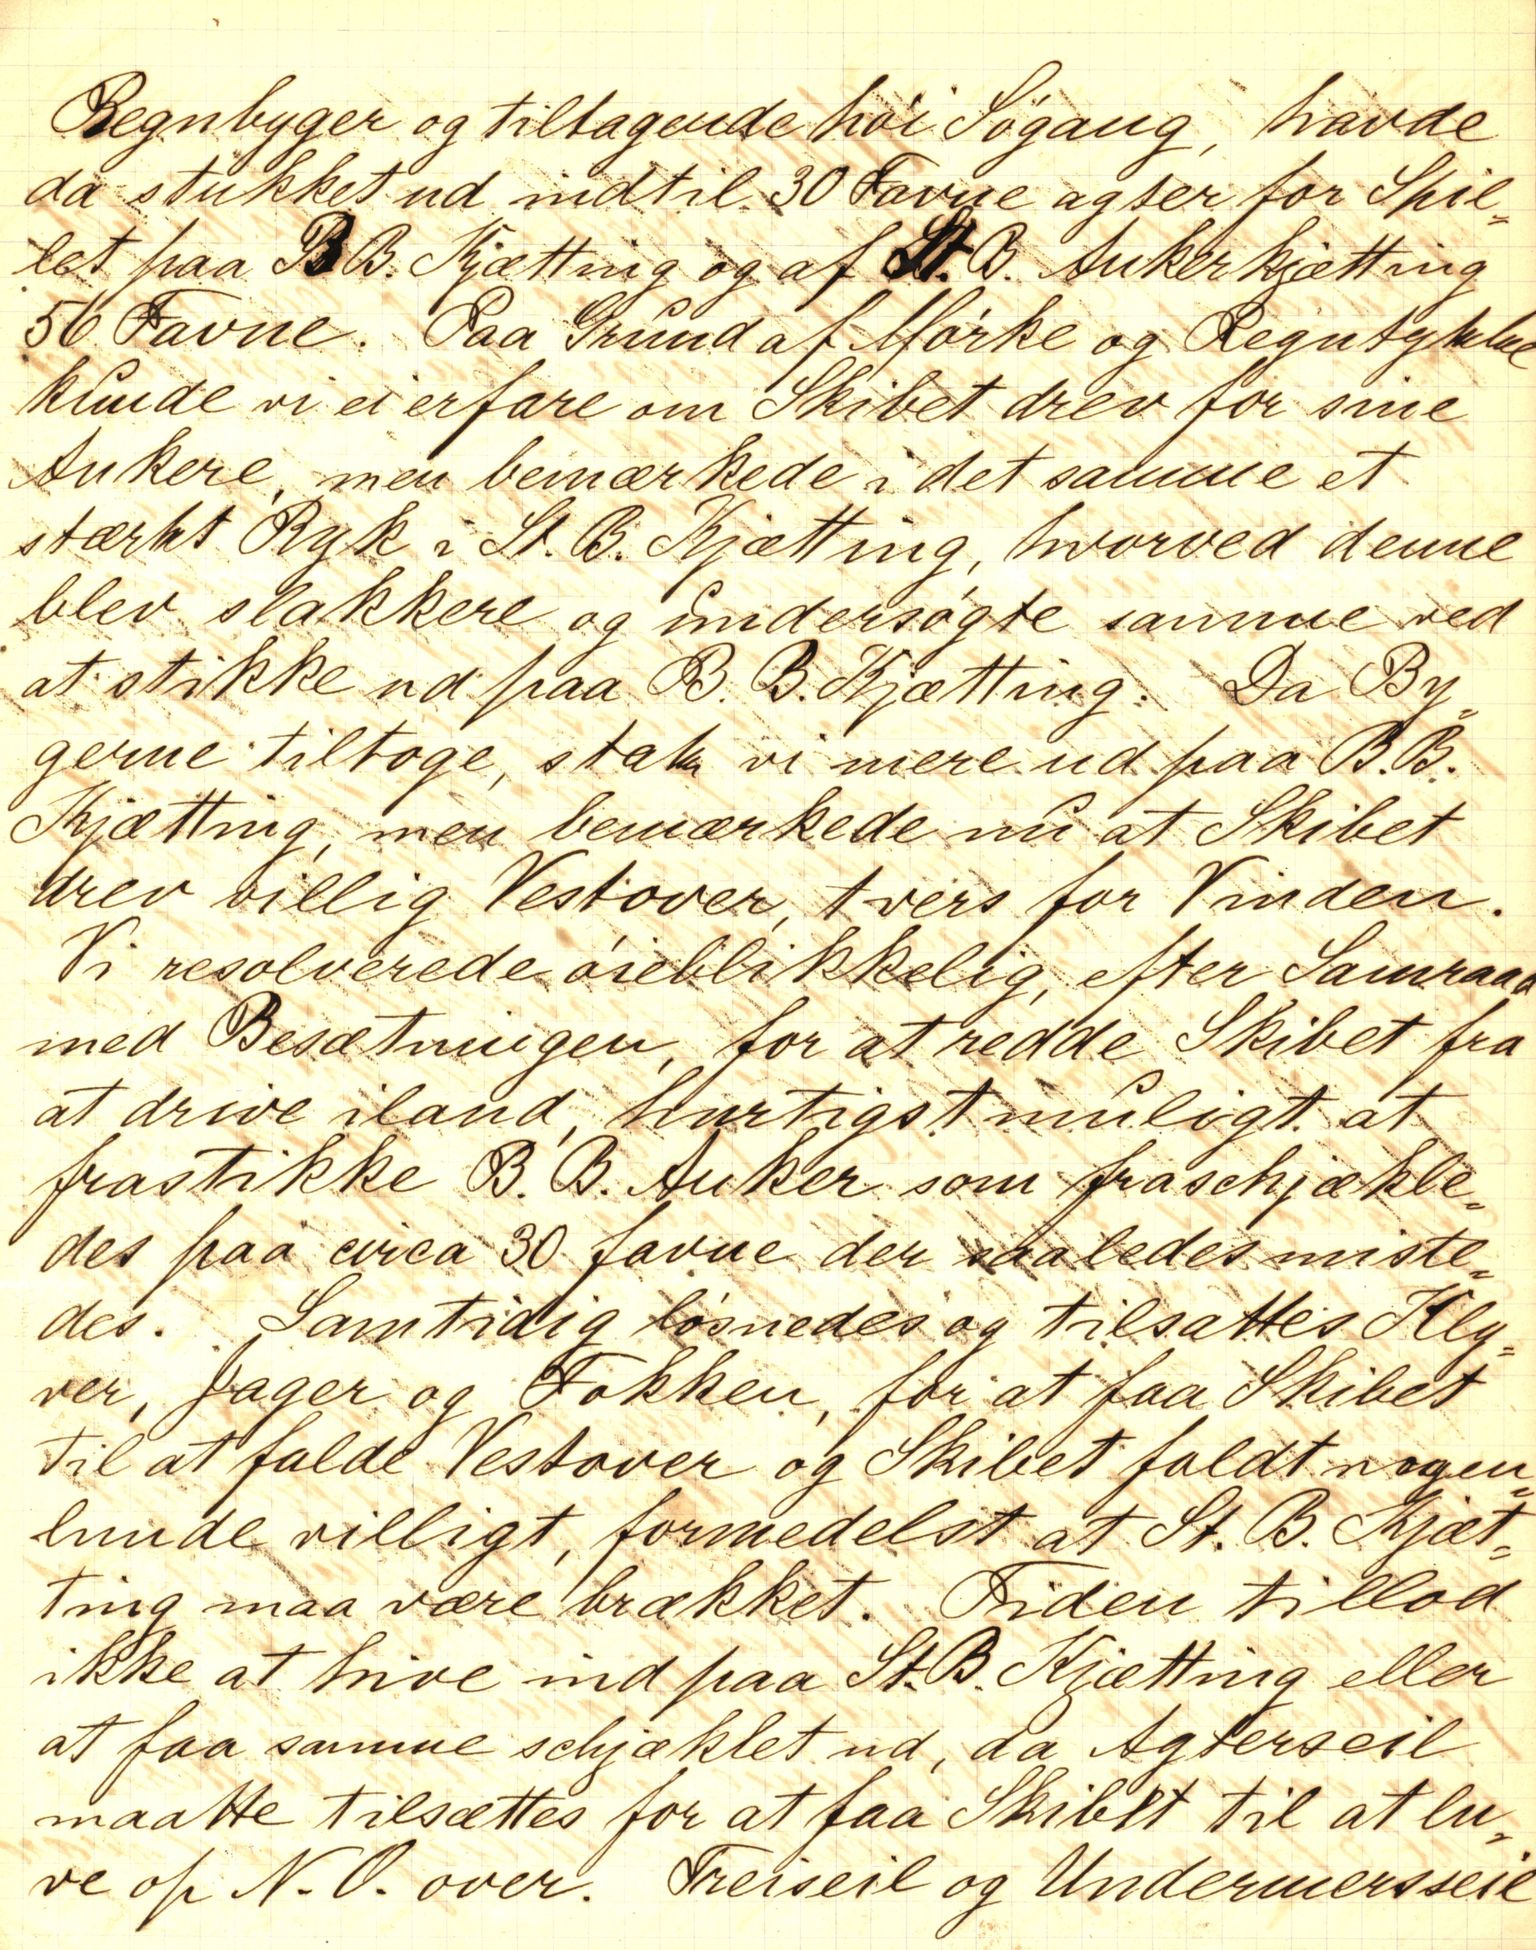 Regnbyger og tiltagende höi Sögang, havde
da stukket ud indtil 30 Favne agter for Spil-
let paa B B. Kjætting og af St. B. Ankerkjætting
56 Favne. Paa Grund af Mörke og Regntykke
kunde vi ei erfare om Skibet drev for sine
Ankere, men bemærkede i det samme et
stærkt Ryk i St. B. Kjætting, hvorved denne
blev slakkere og undersögte samme ved
at stikke ud paa B. B. Kjætting. Da By-
gerne tiltoge, stak vi mere ud paa B. B.
Kjætting, men bemærkede nu at Skibet
drev villig Vestover, tvers for Vinden.
Vi resolverede öieblikkelig, efter Samraad
med Besætningen, for at redde Skibet fra
at drive iland, hurtigst muligt at
frastikke B. B. Anker som fraschjækle-
des paa circa 30 favne der saaledes miste-
des. Samtidig lösnedes og tilsattes Kly-
ver, Jager og Fokken, for at faa Skibet
til at falde Vestover og Skibet faldt nogen-
lunde villigt, formedelst at St. B. Kjæt-
ting maa være brækket. Tiden tillod
ikke at hive ind paa St. B. Kjætting eller
at faa samme schjæklet ud, da Agterseil
maatte tilsættes for at faa Skibet til at lu-
ve op N. O. over. Treiseil og Undermersseil